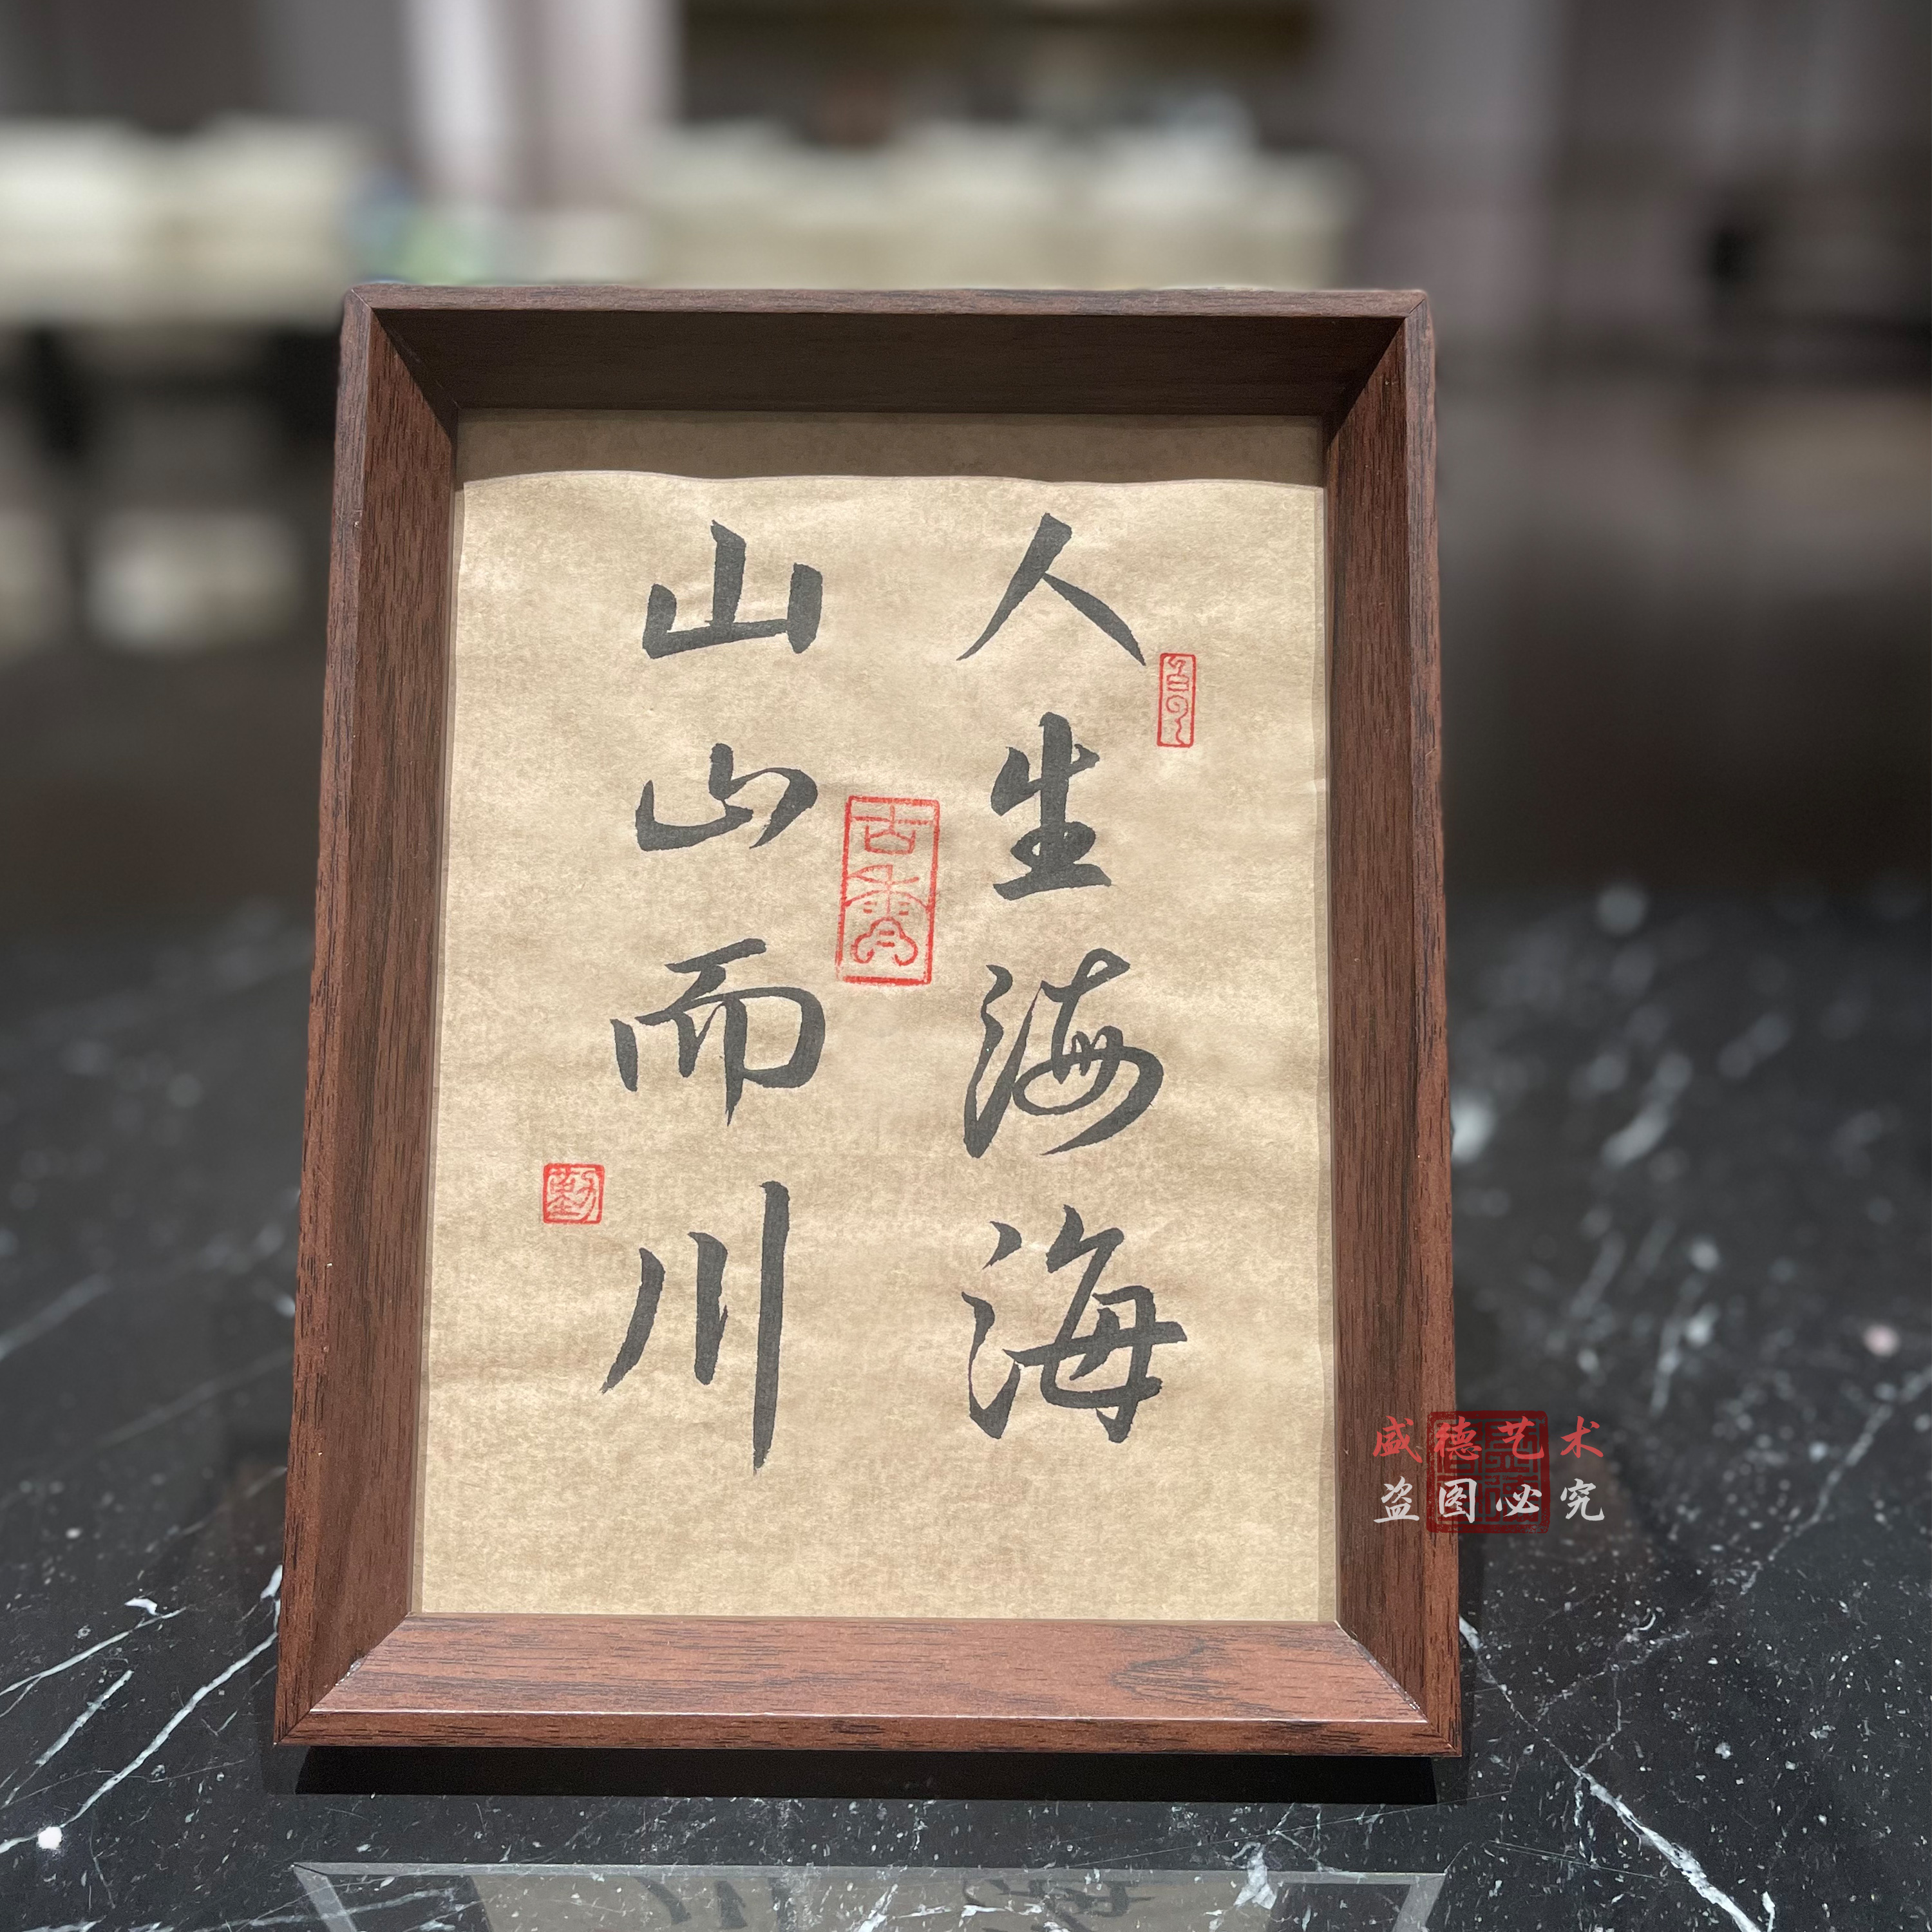 人生海海
山山而川
盛德艺术
盗图必究